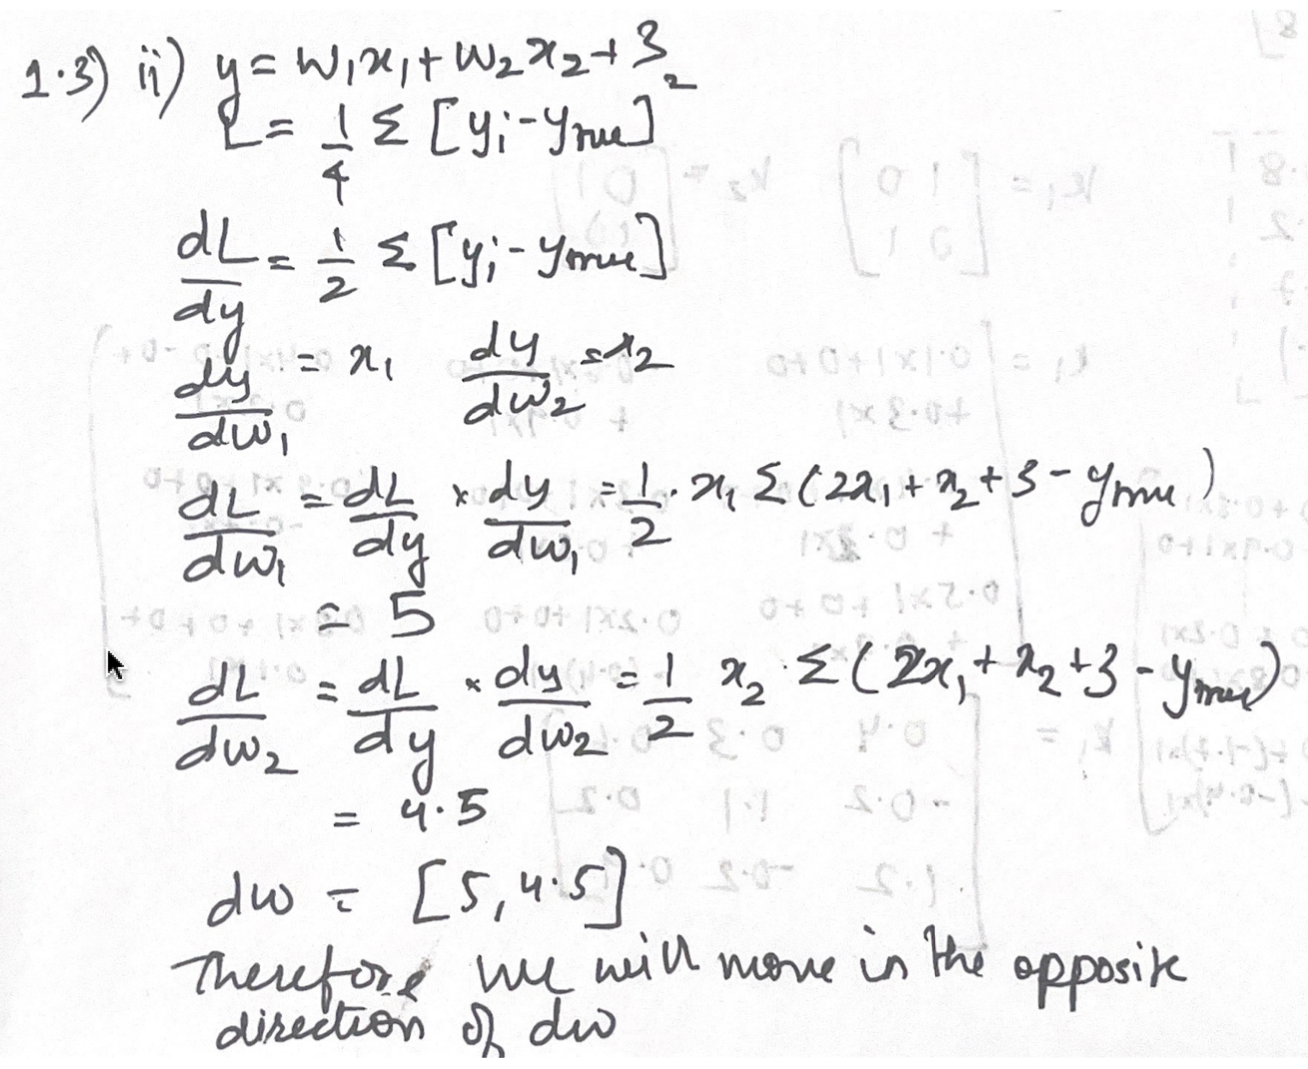 1.3) ii) y = w₁x₁ + w₂x₂ + 3
L = 1/4 Σ [yᵢ - y_true]²
dL/dy = 1/2 Σ [yᵢ - y_true]
dy/dw₁ = x₁ dy/dw₂ = x₂
dL/dw₁ = dL/dy × dy/dw₁ = 1/2 · x₁ Σ (2x₁ + x₂ + 3 - y_true)
= 5
dL/dw₂ = dL/dy × dy/dw₂ = 1/2 x₂ · Σ (2x₁ + x₂ + 3 - y_true)
= 4.5
dw = [5, 4.5]
Therefore we will move in the opposite
direction of dw